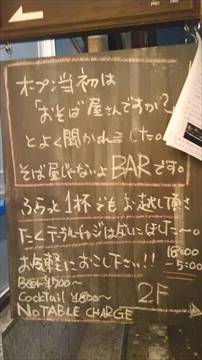 オープン当初は
「おそば屋さんですか?」
とよく聞かれました。
そば屋じゃないよBARです。
ふらっと1杯でもお越し頂き
たくテーブルチャージはなしにしました〜。
お気軽にお越し下さい!!
18:00
〜5:00
Beer ¥500〜
Cocktail ¥800〜
2F
NO TABLE CHARGE